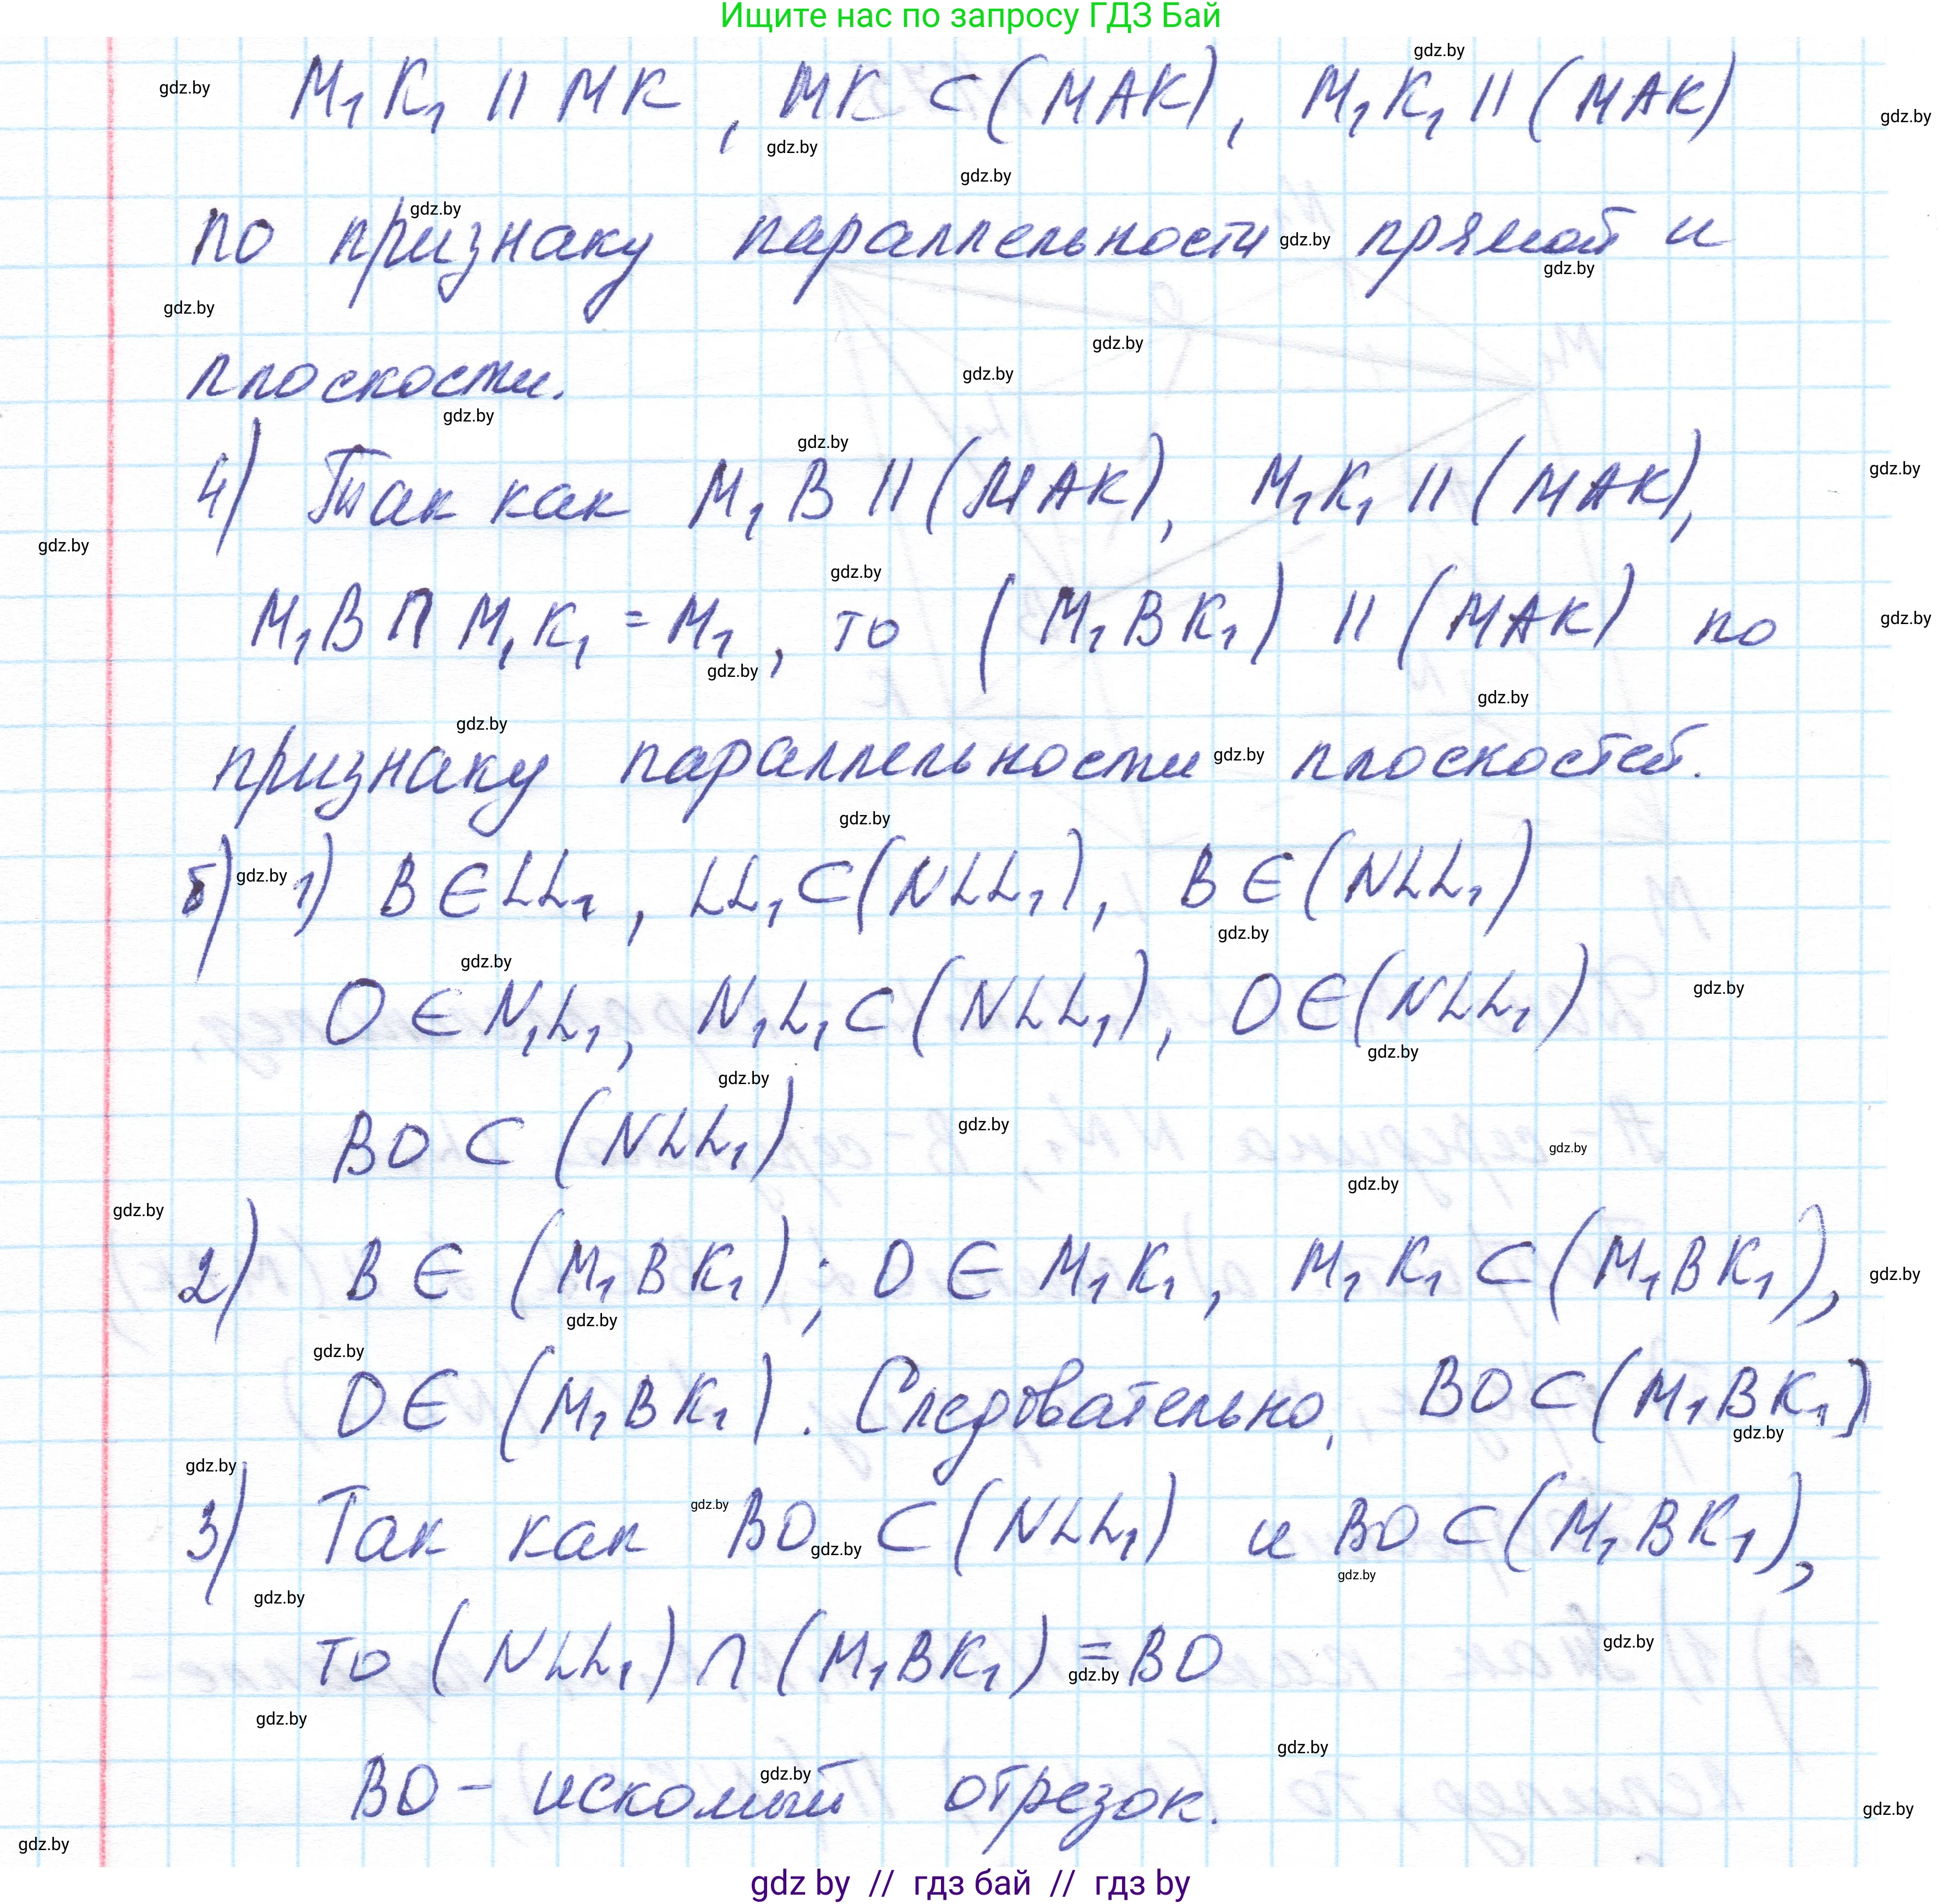 Ищите нас по запросу ГДЗ Бай
M₁K₁ || MK, MK ⊂ (MAK), M₁K₁ || (MAK)
по признаку параллельности прямой и
плоскости.
4) Так как M₁B || (MAK), M₁K₁ || (MAK),
M₁B ∩ M₁K₁ = M₁, то (M₁BK₁) || (MAK) по
признаку параллельности плоскостей.
б) 1) B ∈ LL₁, LL₁ ⊂ (NLL₁), B ∈ (NLL₁)
O ∈ N₁L₁, N₁L₁ ⊂ (NLL₁), O ∈ (NLL₁)
BO ⊂ (NLL₁)
2) B ∈ (M₁BK₁); O ∈ M₁K₁, M₁K₁ ⊂ (M₁BK₁),
O ∈ (M₁BK₁). Следовательно, BO ⊂ (M₁BK₁)
3) Так как BO ⊂ (NLL₁) и BO ⊂ (M₁BK₁),
то (NLL₁) ∩ (M₁BK₁) = BO
BO - искомый отрезок.
gdz by // гдз бай // гдз by